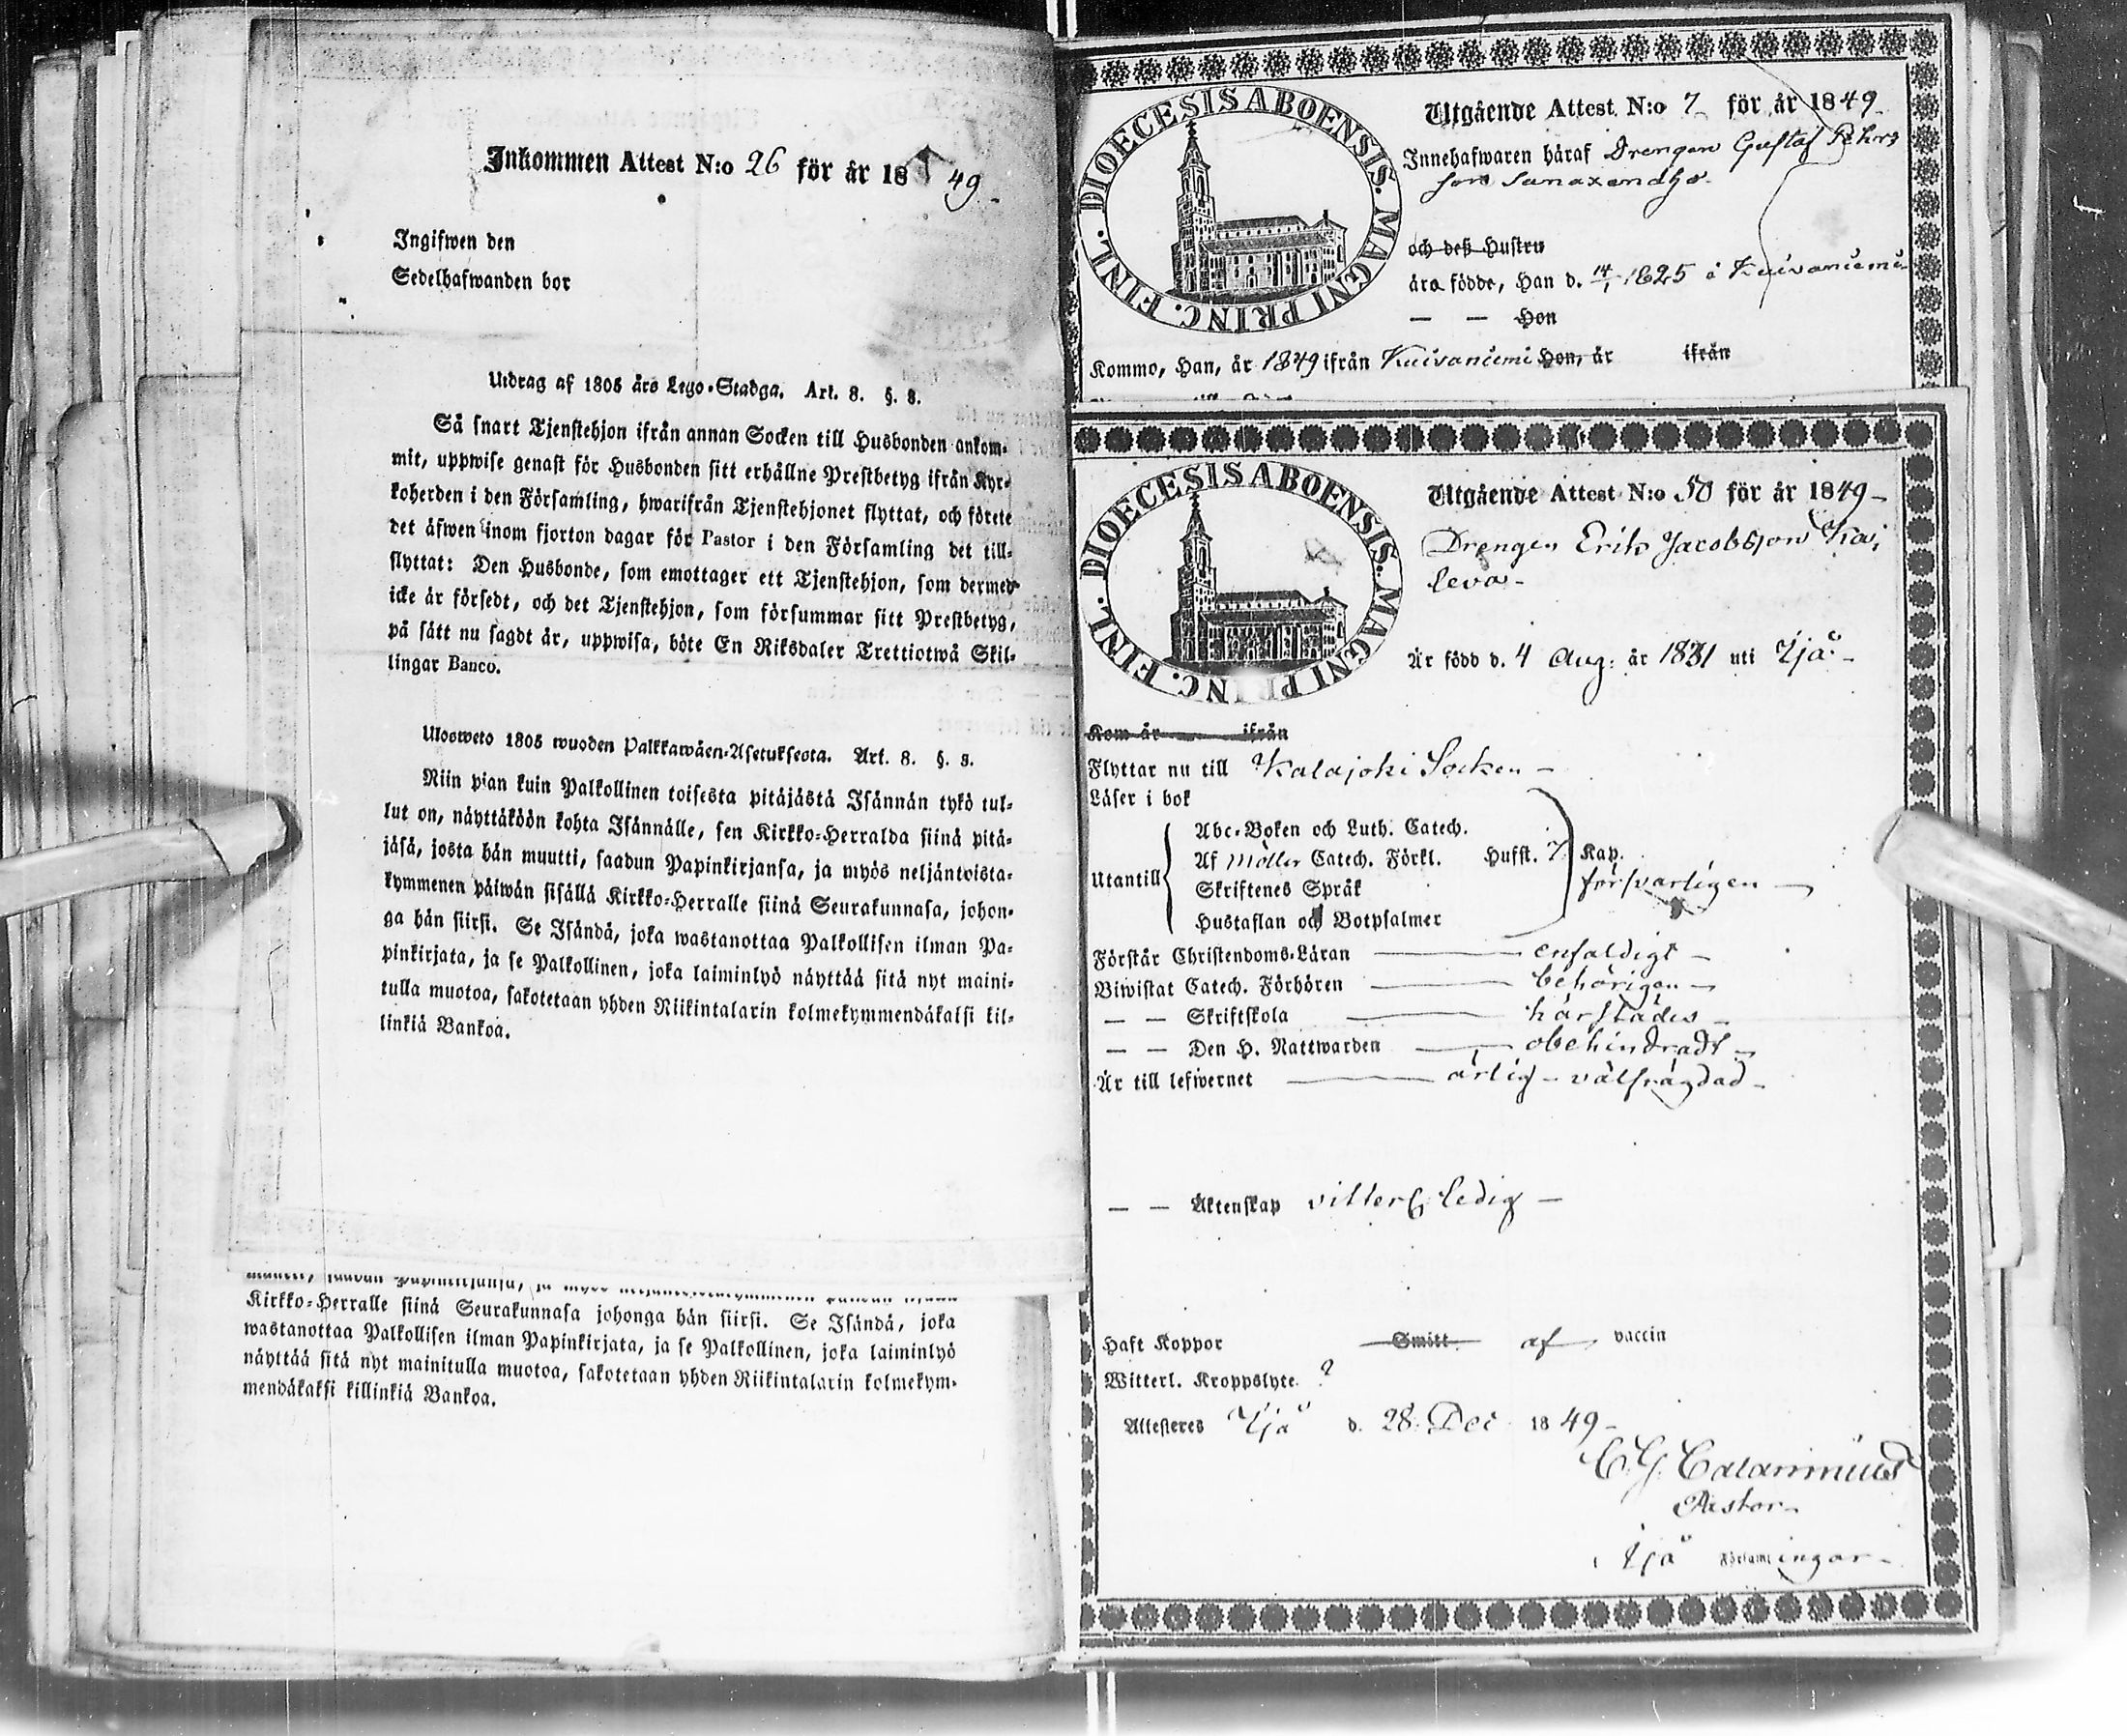 Inkommen Attest N:o 26 för år 18 49
Ingifwen den
Sedelhafwanden bor
Utdrag af 1805 års Lego-Stadga. Art. 8. §. 8.
Så snart Tjenstehjon ifrån annan Socken till Husbonden ankom-
mit, uppwise genast för Husbonden sitt erhållne Prestbetyg ifrån Kyr-
koherden i den Församling, hwarifrån Tjenstehjonet flyttat, och förete
det äfwen inom fjorton dagar för Pastor i den Församling det till-
flyttat: Den Husbonde, som emottager ett Tjenstehjon, som dermed
icke är försedt, och det Tjenstehjon, som försummar sitt Prestbetyg,
på sätt nu sagdt är, uppwisa, böte En Riksdaler Trettiotwå Skil-
lingar Banco.
Ulosweto 1805 wuoden Palkkawäen-Asetuksesta. Art. 8. §. 8.
Niin pian kuin Palkollinen toisesta pitäjästä Isännän tykö tul-
lut on, näyttäköön kohta Isännälle, sen Kirkko-Herralda siinä pitä-
jäsä, josta hän muutti, saadun Papinkirjansa, ja myös neljäntoista-
kymmenen päiwän sisällä Kirkko-Herralle siinä Seurakunnasa, johon-
ga hän siirsi. Se Isändä, joka wastanottaa Palkollisen ilman Pa-
pinkirjata, ja se Palkollinen, joka laiminlyö näyttää sitä nyt maini-
tulla muotoa, sakotetaan yhden Riikintalarin kolmekymmendäkaksi kil-
linkiä Bankoa.
Kirkko-Herralle siinä Seurakunnasa johonga hän siirsi. Se Isändä, joka
wastanottaa Palkollisen ilman Papinkirjata, ja se Palkollinen, joka laiminlyö
näyttää sitä nyt mainitulla muotoa, sakotetaan yhden Riikintalarin kolmekym-
mendäkaksi killinkiä Bankoa.
DIOECESIS ABOENSIS. MAGNI PRINC. FINL.
Utgående Attest. N:o 7 för år 1849
Innehafwaren häraf Drengen Gustaf Pehrs
son
och deß Hustru
äro födde, Han d. 14/1 1825 i Kuivaniemi
— — Hon
Kommo, Han, år 1849 ifrån Kuivaniemi Hon, år ifrån
DIOECESIS ABOENSIS. MAGNI PRINC. FINL.
Utgående Attest N:o 50 för år 1849
Drengen Erik Jacobsson Kai
leva
Är född d. 4 Aug: år 1831 uti Ijå
Kom år ifrån
Flyttar nu till Kalajoki Socken
Läser i bok
Abc-Boken och Luth. Catech.
Utantill Af Möller Catech. Förkl. Hufst. 7 Kap.
Skriftenes Språk försvarligen
Hustaflan och Botpsalmer
Förstår Christendoms-Läran enfaldigt
Biwistat Catech. Förhören behörigen
— — Skriftskola härstädes
— — Den H. Nattwarden obehindradt
Är till lefwernet ärlig välfrägdad
— — Äktenskap ledig
Haft Koppor Smitt af vaccin
Witterl. Kroppslyte ?
Attesteres Ijå d. 28 Dec 1849
C. G. Calamnius
Pastor
i Ijå Församlingar